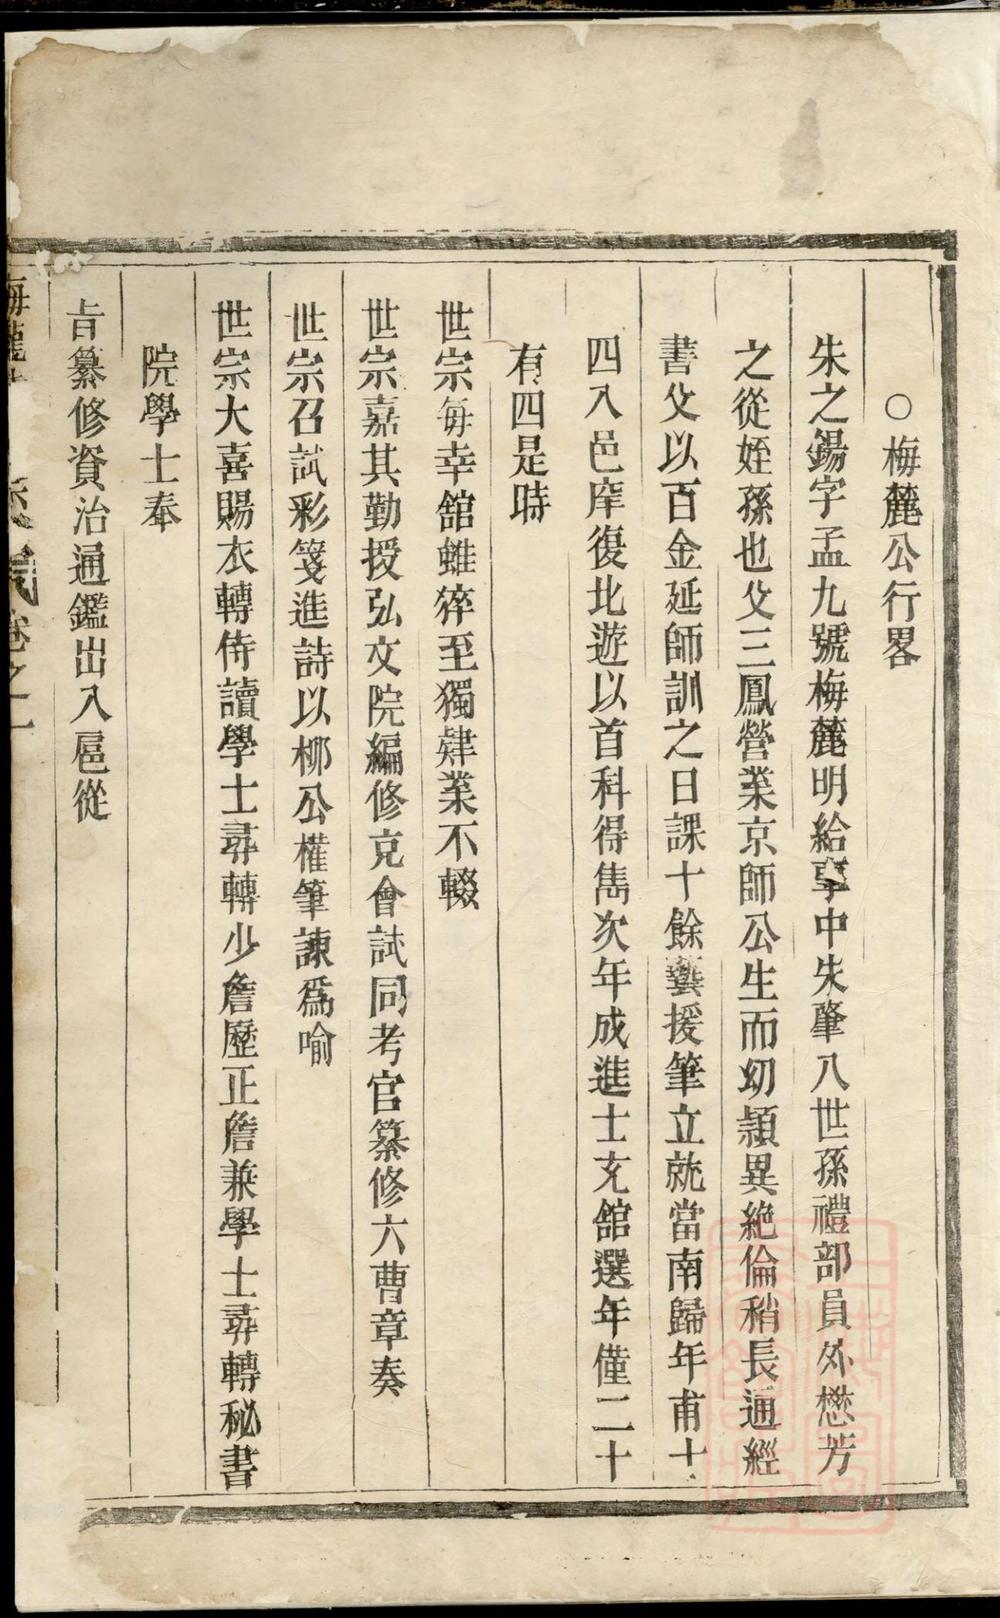 ○梅麓公行畧
朱之錫字孟九號梅麓明給事中朱肇八世孫禮部員外懋芳
之從姪孫也父三鳳營業京師公生而幼頴異絶倫稍長通經
書父以百金延師訓之日課十餘藝援筆立就當南歸年甫十
四入邑庠復北遊以首科得雋次年成進士充舘選年僅二十
有四是時
世宗每幸舘雖猝至獨肄業不輟
世宗嘉其勤授弘文院編修充會試同考官纂修六曹章奏
世宗召試彩箋進詩以柳公權筆諫爲喻
世宗大喜賜衣轉侍讀學士尋轉少詹歷正詹兼學士尋轉秘書
院學士奉
旨纂修資治通鑑出入扈從
卷之二